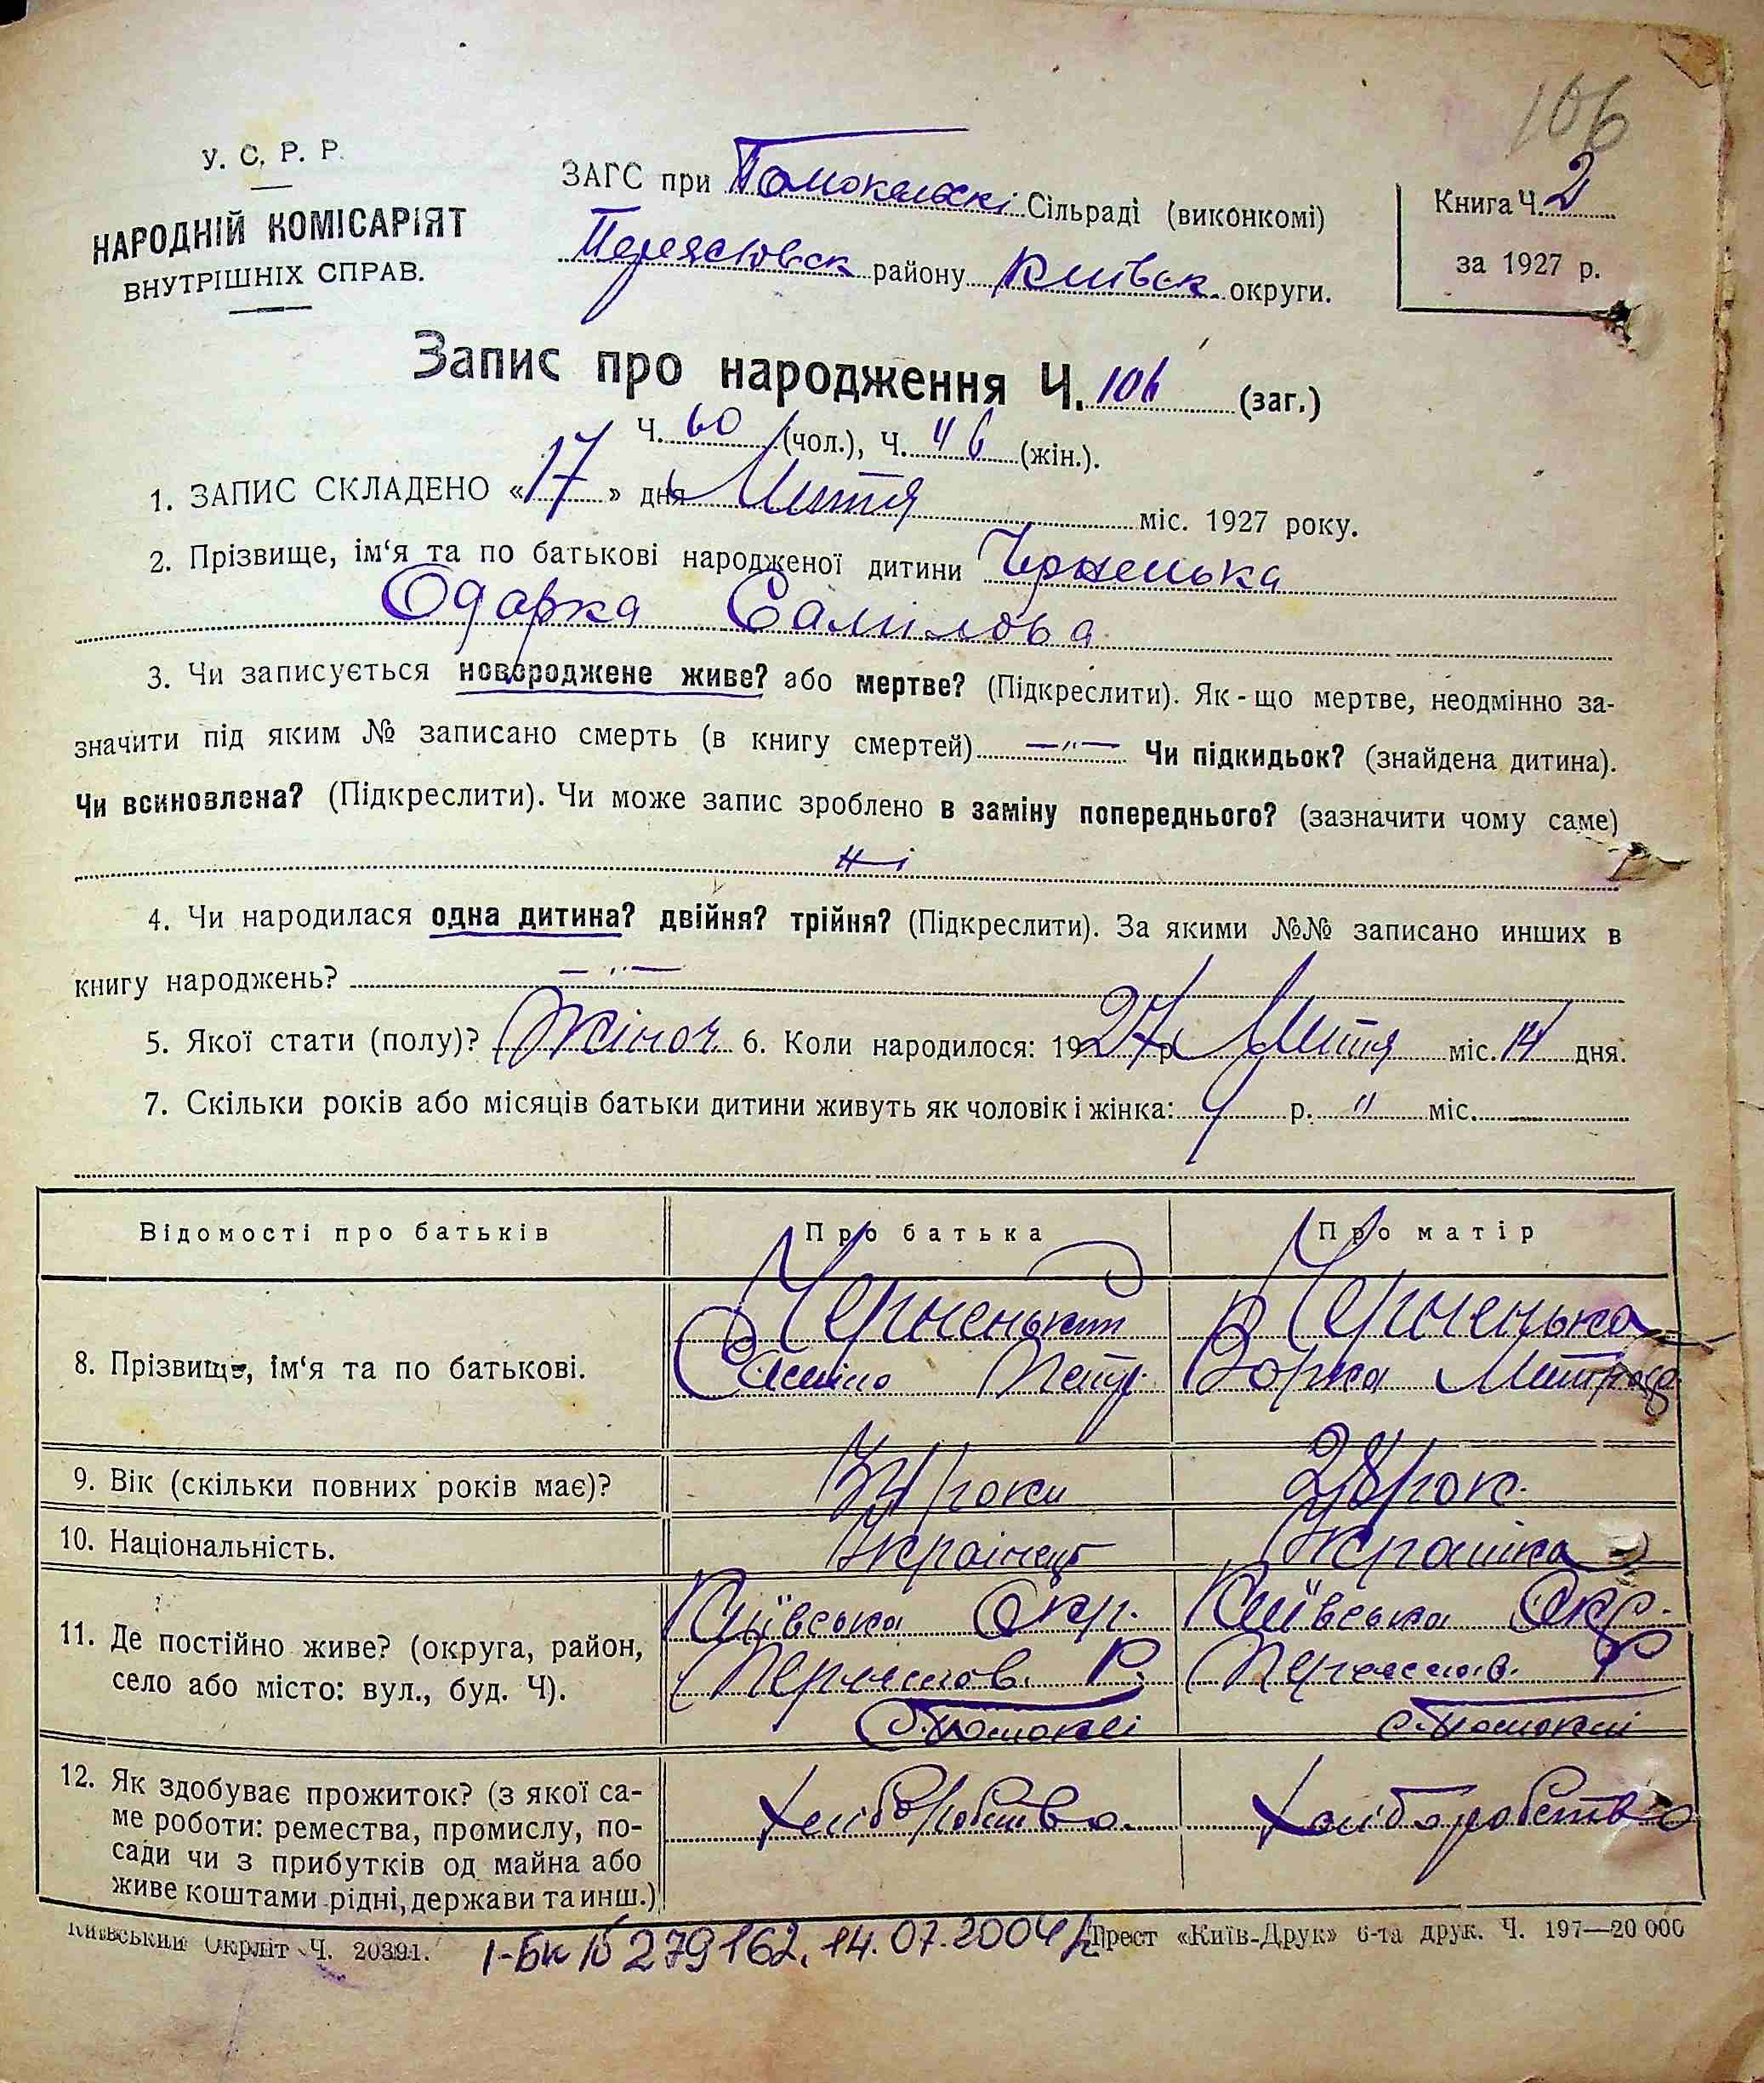 106
У. С. Р. Р.
НАРОДНІЙ КОМІСАРІЯТ
ВНУТРІШНІХ СПРАВ.
ЗАГС при Помокельскі Сільраді (виконкомі)
Переяслівск району Київськ. округи.
Книга Ч. 2
за 1927 р.
Запис про народження Ч. 106 (заг.)
Ч. 60 (чол.), Ч. 46 (жін.).
1. ЗАПИС СКЛАДЕНО «17» дня Липня міс. 1927 року.
2. Прізвище, ім'я та по батькові народженої дитини Черненька
Одарка Самілова
3. Чи записується новороджене живе? або мертве? (Підкреслити). Як-що мертве, неодмінно за-
значити під яким № записано смерть (в книгу смертей) —"— Чи підкидьок? (знайдена дитина).
Чи всиновлена? (Підкреслити). Чи може запис зроблено в заміну попереднього? (зазначити чому саме)
Ні
4. Чи народилася одна дитина? двійня? трійня? (Підкреслити). За якими №№ записано инших в
книгу народжень? —"—
5. Якої стати (полу)? Жіноч. 6. Коли народилося: 1927 р. Липня міс. 14 дня.
7. Скільки років або місяців батьки дитини живуть як чоловік і жінка: 9 р. " міс.
Відомості про батьків Про батька Про матір
8. Прізвище, ім'я та по батькові. Черненький Черненька
Саміло Петр. Ворка Митров
9. Вік (скільки повних років має)? 34 роки 28 рок.
10. Національність. Українець Українка
11. Де постійно живе? (округа, район, село або місто: вул., буд. Ч). Київська Окр. Київська Окр.
Переяслов. Р. Переяслов. Р
с. Помоклі с. Помоклі
12. Як здобуває прожиток? (з якої са-
ме роботи: ремества, промислу, по-
сади чи з прибутків од майна або
живе коштами рідні, держави та инш.)
Хліборобство. Хліборобство
Київський Окрліт Ч. 20391.
І-БК № 279162. 14.07.2004
Трест «Київ-Друк» 6-та друк. Ч. 197—20 000